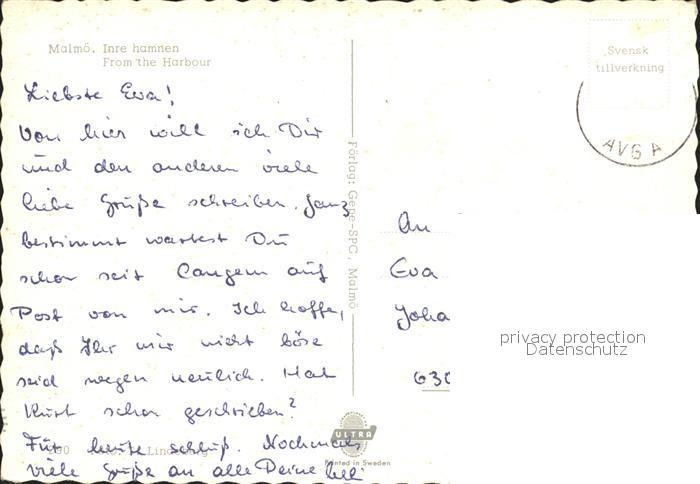 Malmö. Inre hamnen
From the Harbour
Svensk
tillverkning
AVGA
Liebste Eva!
Von hier will ich Dir
und den anderen viele
liebe Grüße schreiben. Ganz
bestimmt wartest Du
schon seit Langem auf
Post von mir. Ich hoffe,
daß Ihr mir nicht böse
seid wegen neulich. Hat
Kurt schon geschrieben?
Für heute schluß. Nochmals
viele Grüße an alle Deine
Förlag: Gege-SPC, Malmö
An
Eva
Joha
630
privacy protection
Datenschutz
ULTRA
Printed in Sweden